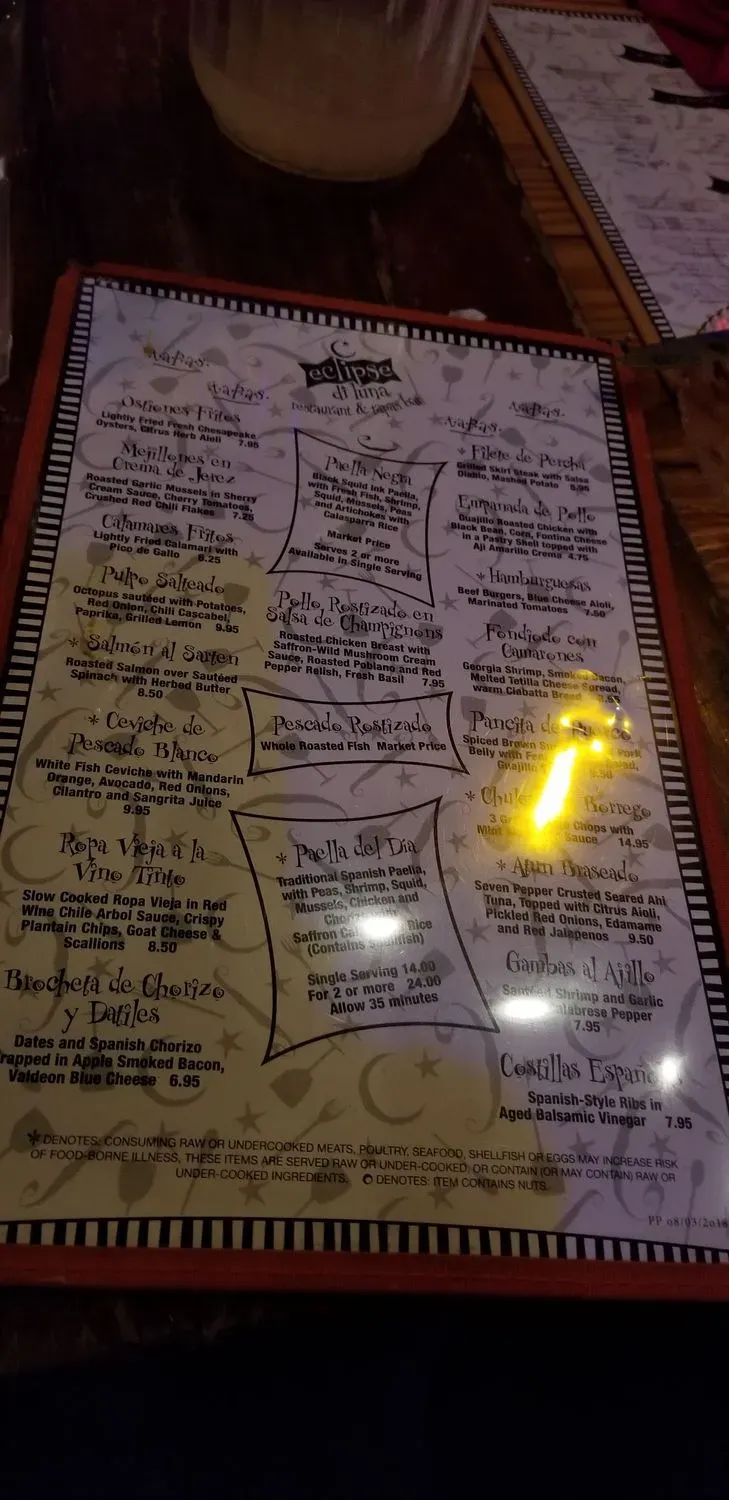 eclipse
di luna
restaurant & tapas bar
Tapas.
Tapas.
Ostiones Fritos
Lightly Fried Fresh Chesapeake
Oysters, Citrus Herb Aioli 7.95
Mejillones en
Crema de Jerez
Roasted Garlic Mussels in Sherry
Cream Sauce, Cherry Tomatoes,
Crushed Red Chili Flakes 7.25
Calamares Fritos
Lightly Fried Calamari with
Pico de Gallo 8.25
Pulpo Salteado
Octopus sautéed with Potatoes,
Red Onion, Chili Cascabel,
Paprika, Grilled Lemon 9.95
* Salmón al Sarten
Roasted Salmon over Sautéed
Spinach with Herbed Butter
8.50
* Ceviche de
Pescado Blanco
White Fish Ceviche with Mandarin
Orange, Avocado, Red Onions,
Cilantro and Sangrita Juice
9.95
Ropa Vieja a la
Vino Tinto
Slow Cooked Ropa Vieja in Red
Wine Chile Arbol Sauce, Crispy
Plantain Chips, Goat Cheese &
Scallions 8.50
Brocheta de Chorizo
y Datiles
Dates and Spanish Chorizo
rapped in Apple Smoked Bacon,
Valdeon Blue Cheese 6.95
Paella Negra
Black Squid Ink Paella,
with Fresh Fish, Shrimp,
Squid, Mussels, Peas
and Artichokes with
Calasparra Rice
Market Price
Serves 2 or more
Available in Single Serving
Pollo Rostizado en
Salsa de Champignons
Roasted Chicken Breast with
Saffron-Wild Mushroom Cream
Sauce, Roasted Poblano and Red
Pepper Relish, Fresh Basil 7.95
Pescado Rostizado
Whole Roasted Fish Market Price
* Paella del Dia
Traditional Spanish Paella,
with Peas, Shrimp, Squid,
Mussels, Chicken and
Chorizo
Saffron Rice
(Contains
Single Serving 14.00
For 2 or more 24.00
Allow 35 minutes
Tapas.
Tapas.
* Filete de Percha
Grilled Skirt Steak with Salsa
Diablo, Mashed Potato 8.95
Empanada de Pollo
Guajillo Roasted Chicken with
Black Bean, Corn, Fontina Cheese
in a Pastry Shell topped with
Aji Amarillo Crema 4.75
* Hamburguesas
Beef Burgers, Blue Cheese Aioli,
Marinated Tomatoes 7.50
Fondiodo con
Camarones
Georgia Shrimp, Smoked Bacon,
Melted Tetilla Cheese Spread,
warm Ciabatta Bread
Pancita de Puerco
Spiced Brown Pork
Belly with
Guajillo
* Borrego
3 Chops with
Mint Sauce 14.95
* Atun Braseado
Seven Pepper Crusted Seared Ahi
Tuna, Topped with Citrus Aioli,
Pickled Red Onions, Edamame
and Red Jalapenos 9.50
Gambas al Ajillo
Shrimp and Garlic
Calabrese Pepper
7.95
Costillas
Spanish-Style Ribs in
Aged Balsamic Vinegar 7.95
* DENOTES: CONSUMING RAW OR UNDERCOOKED MEATS, POULTRY, SEAFOOD, SHELLFISH OR EGGS MAY INCREASE RISK
OF FOOD-BORNE ILLNESS, THESE ITEMS ARE SERVED RAW OR UNDER-COOKED, OR CONTAIN (OR MAY CONTAIN) RAW OR
UNDER-COOKED INGREDIENTS. DENOTES: ITEM CONTAINS NUTS.
PP 08/03/2018